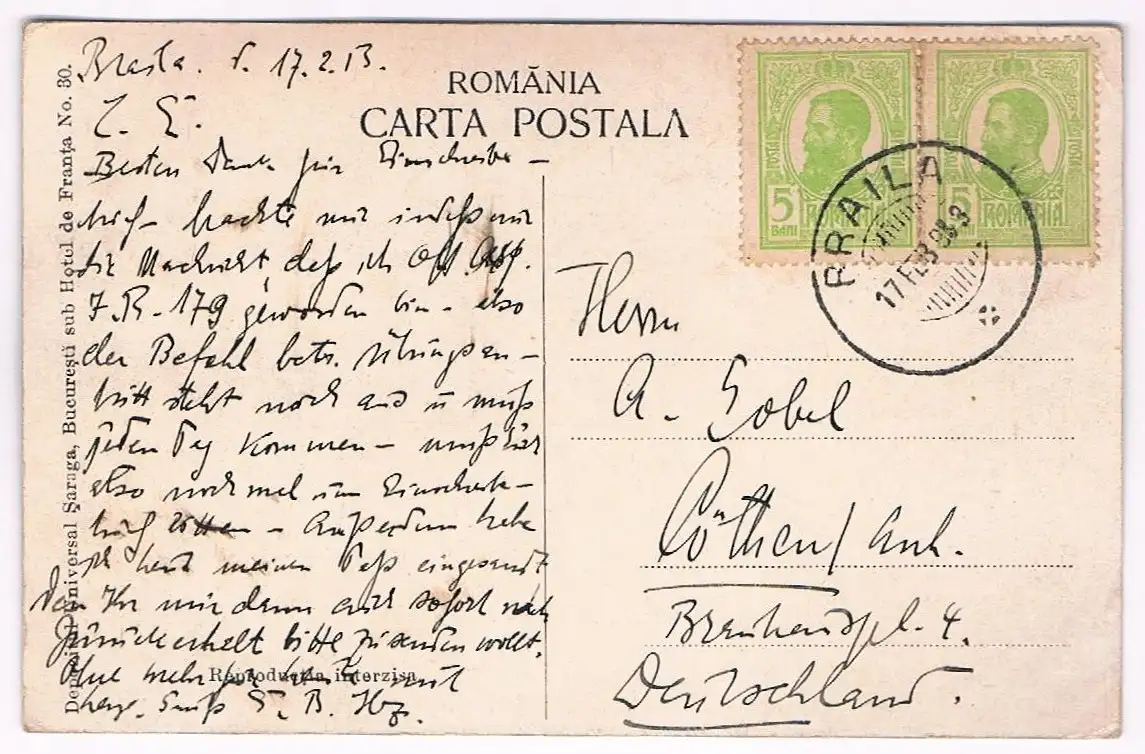 Braila. d. 17.2.13.
L. E.
Besten Dank für Einschreibe-
brief – hackte mir
die Nachricht daß ich Off. Asp.
I.R. 179 geworden bin – also
der Befehl betr. Übungsan-
tritt steht noch aus u muß
jeden Tag kommen – muß
also nochmal um Einschreibe-
brief bitten – Außerdem habe
ich heut meinen Paß eingesandt
den Ihr mir dann auch sofort nach
Zurückerhalt bitte zusenden wollt.
mehr für heut mit
herzl. Gruß E. B. Hz.
Universal Şaraga, Bucureşti sub Hotul de Franţa No. 30.
ROMĂNIA
CARTA POSTALA
Reproducţia interzisa
POSTA
5
BANI
ROMANIA
5
ROMANIA
BRAILA
17 FEB 913
Herrn
A. Gobel
Cöthen/Anh.
4.
Deutschland.